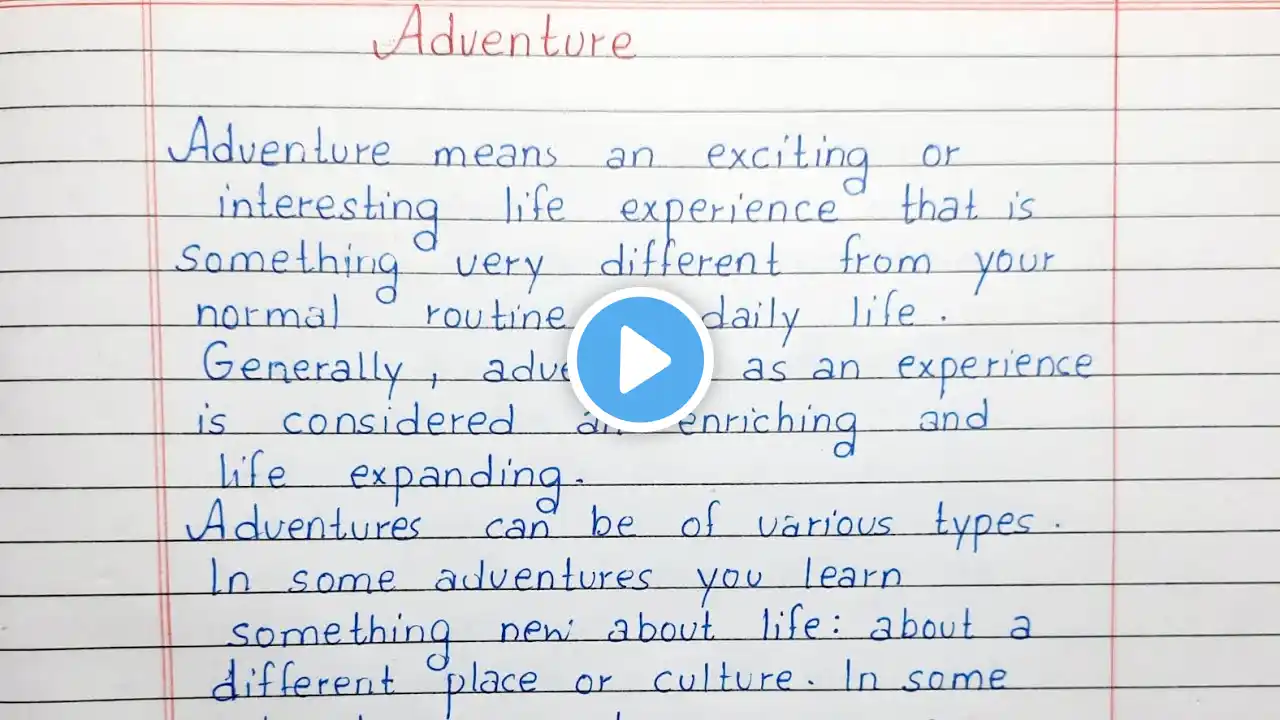 Adventure
Adventure means an exciting or
interesting life experience that is
something very different from your
normal routine daily life.
Generally, as an experience
is considered enriching and
life expanding.
Adventures can be of various types.
In some adventures you learn
something new about life: about a
different place or culture. In some